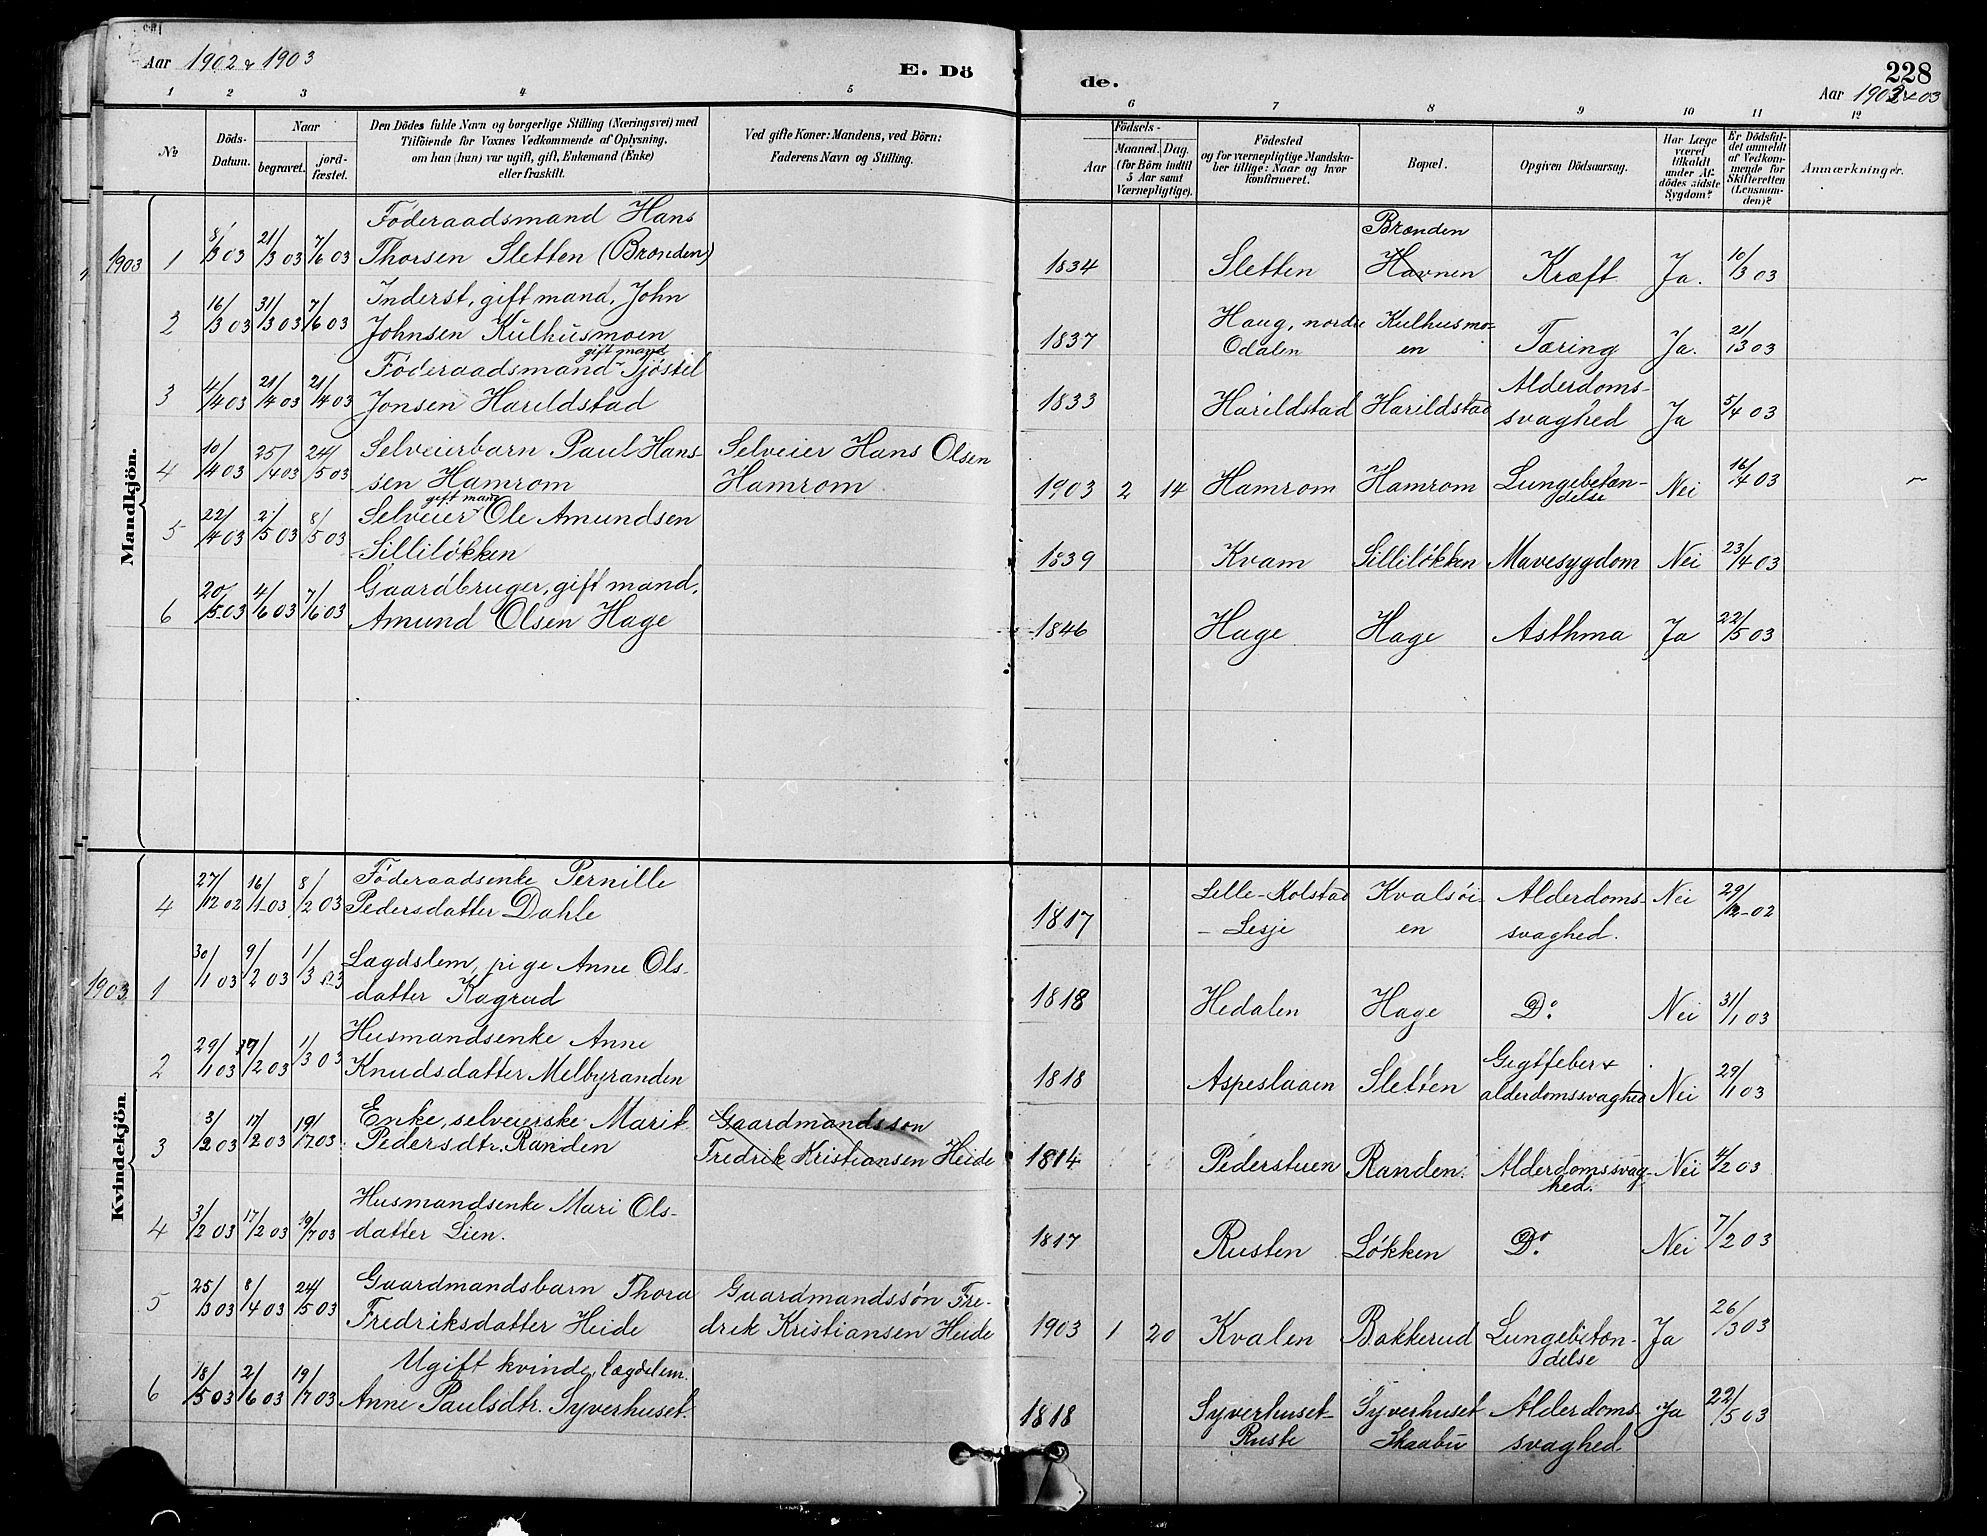 Aar 1902 & 1903
E. Dö
de.
228
Aar 1902 & 03
1 2 3 4 5 6 7 8 9 10 11 12
№
Döds-
Datum.
Naar
begravet.
jord-
fæstet.
Den Dödes fulde Navn og borgerlige Stilling (Næringsvei) med
Tilföiende for Voxnes Vedkommende af Oplysning,
om han (hun) var ugift, gift, Enkemand (Enke)
eller fraskilt.
Ved gifte Koner: Mandens, ved Börn:
Faderens Navn og Stilling.
Födsels-
Aar
Maaned.
Dag.
(for Börn indtil
5 Aar samt
Værnepligtige).
Födested
og for værnepligtige Mandska-
ber tillige: Naar og hvor
konfirmeret.
Bopæl.
Opgiven Dödsaarsag.
Har Læge
været
tilkaldt
under Af-
dödes sidste
Sygdom?
Er Dödsfal-
det anmeldt
af Vedkom-
mende for
Skifteretten
(Lensman-
den)?
Anmærkninger.
Mandkjön.
1903 1 8/3 03 21/3 03 7/6 03 Föderaadsmand Hans
Thorsen Sletten (Brænden)
1834 Sletten Brænden Havnen Kræft Ja. 10/3 03
2 16/3 03 31/3 03 7/6 03 Inderst, gift mand, John
Johnsen Kulhusmoen
1837 Haug, nordre Odalen Kulhusmo-en Tæring Ja. 21/3 03
gift mand
3 4/4 03 21/4 03 21/4 03 Föderaadsmand Tjöstel
Jonsen Harildstad
1833 Harildstad Harildstad Alderdoms-svaghed Ja 5/4 03
4 10/4 03 25/4 03 24/5 03 Selveierbarn Paul Hans-
sen Hamrom
Selveier Hans Olsen
Hamrom
1903 2 14 Hamrom Hamrom Lungebetæn-delse Nei 16/4 03
gift mand
5 22/4 03 2/5 03 8/5 03 Selveier Ole Amundsen
Silliløkken
1839 Kvam Silliløkken Mavesygdom Nei 23/4 03
6 20/5 03 4/6 03 7/6 03 Gaardbruger, gift mand,
Amund Olsen Hage
1846 Hage Hage Asthma Ja 22/5 03
Kvindekjön.
4 27/12 02 16/1 03 8/2 03 Föderaadsenke Pernille
Pedersdatter Dahle
1817 Lille-Kolstad - Lesje Kvalsöi-en Alderdoms-svaghed. Nei 29/12-02
1903 1 30/1 03 9/2 03 1/3 03 Lægdslem, pige Anne Ols-
datter Kagrud
1818 Hedalen Hage Do. Nei 31/1 03
2 29/1 03 17/2 03 1/3 03 Husmandsenke Anne
Knudsdatter Melbyranden
1818 Aspeslaaen Sletten Gigtfeber & alderdomssvaghed Nei 29/1 03
3 3/2 03 17/2 03 19/7 03 Enke, selveierske Marit
Pedersdtr. Randen
Gaardmandssøn
Fredrik Kristiansen Heide
1814 Pederstuen Randen. Alderdomssvag-hed. Nei 4/2 03
4 3/2 03 17/2 03 19/7 03 Husmandsenke Mari Ols-
datter Lien.
1817 Rusten Løkken Do. Nei 7/2 03
5 25/3 03 8/4 03 24/5 03 Gaardmandsbarn Thora
Fredriksdatter Heide
Gaardmandssøn Fre-
drik Kristiansen Heide
1903 1 20 Kvalen Bakkerud Lungebetæn-delse Ja 26/3 03
6 18/5 03 2/6 03 19/7 03 Ugift kvinde, lægdslem.
Anne Paulsdtr. Syverhuset.
1818 Syverhuset-Ruste Syverhuset Skaabu Alderdoms-svaghed Ja 22/5 03